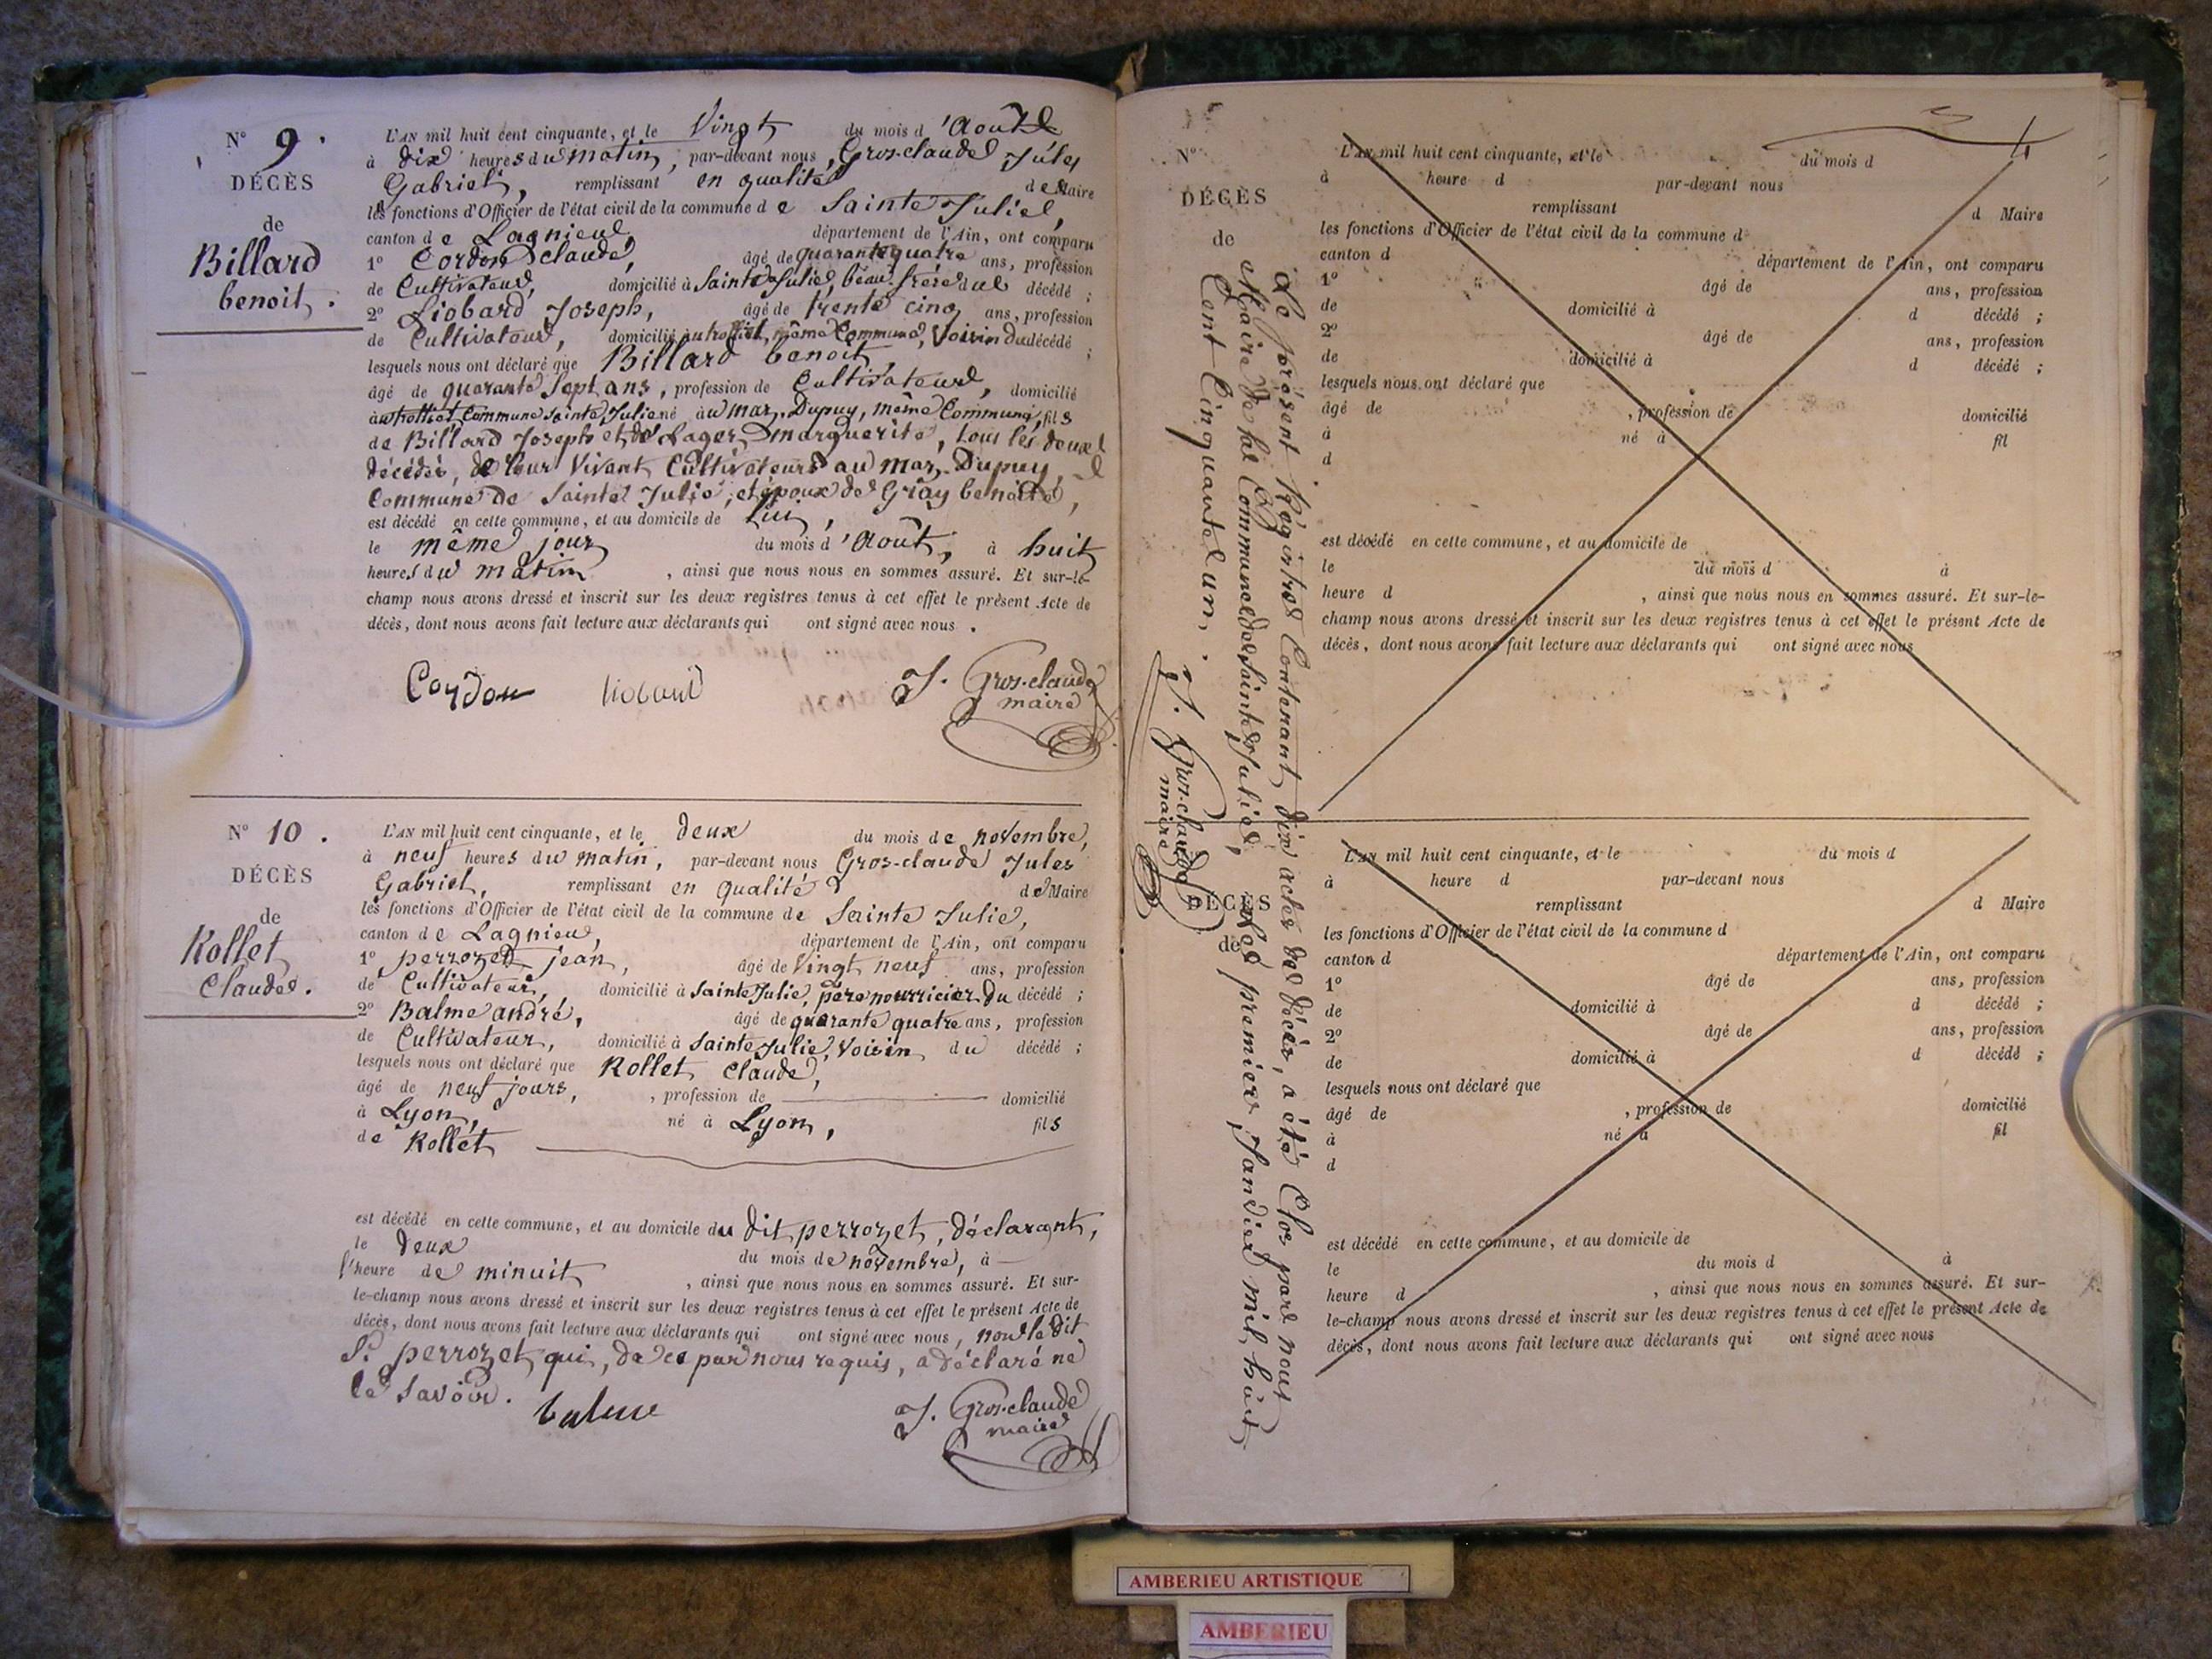 N° 9.
DÉCÈS
de
Billard
benoit.
L'AN mil huit cent cinquante, et le Vingt du mois d'Août
à dix heures du matin, par-devant nous, Gros-claude Jules
Gabriel, remplissant en qualité de Maire
les fonctions d'Officier de l'état civil de la commune de Sainte Julie,
canton de Lagnieu, département de l'Ain, ont comparu
1° Cordon claude, âgé de quarante quatre ans, profession
de Cultivateur, domicilié à Sainte Julie, beau-frère du décédé ;
2° Liobard Joseph, âgé de trente cinq ans, profession
de Cultivateur, domicilié au trolliet, même Commune, Voisin du décédé ;
lesquels nous ont déclaré que Billard benoit,
âgé de quarante Sept ans, profession de Cultivateur, domicilié
au trolliet, Commune Sainte Julie né au mas. Dupuy, même Commune, fils
de Billard Joseph et de Lager marguerite, tous les deux
décédés, de leur Vivant Cultivateurs au mas. Dupuy,
Commune de Sainte Julie, et époux de Gray benoîte,
est décédé en cette commune, et au domicile de Lui,
le même jour du mois d'Août, à huit
heures du matin, ainsi que nous nous en sommes assuré. Et sur-le-
champ nous avons dressé et inscrit sur les deux registres tenus à cet effet le présent Acte de
décès, dont nous avons fait lecture aux déclarants qui ont signé avec nous.
Cordon liobard J. Gros-claude
maire
N° 10.
DÉCÈS
de
Rollet
Claude.
L'AN mil huit cent cinquante, et le deux du mois de novembre,
à neuf heures du matin, par-devant nous Gros-claude Jules
Gabriel, remplissant en qualité de Maire
les fonctions d'Officier de l'état civil de la commune de Sainte Julie,
canton de Lagnieu, département de l'Ain, ont comparu
1° perrozet jean, âgé de Vingt neuf ans, profession
de Cultivateur, domicilié à Sainte Julie, père nourricier du décédé ;
2° Balme andré, âgé de quarante quatre ans, profession
de Cultivateur, domicilié à Sainte Julie, Voisin du décédé ;
lesquels nous ont déclaré que Rollet claude,
âgé de neuf jours, , profession de domicilié
à Lyon, né à Lyon, fils
de Rollet
est décédé en cette commune, et au domicile du dit perrozet, déclarant,
le deux du mois de novembre, à
l'heure de minuit, ainsi que nous nous en sommes assuré. Et sur-
le-champ nous avons dressé et inscrit sur les deux registres tenus à cet effet le présent Acte de
décès, dont nous avons fait lecture aux déclarants qui ont signé avec nous, non le dit
Sr. perrozet qui, de ce par nous requis, a déclaré ne
le Savoir.
balme J. Gros-claude
maire
N°
DÉCÈS
de
L'AN mil huit cent cinquante, et le du mois d
à heure d par-devant nous
remplissant d Maire
les fonctions d'Officier de l'état civil de la commune d
canton d département de l'Ain, ont comparu
1° âgé de ans, profession
de domicilié à d décédé ;
2° âgé de ans, profession
de domicilié à d décédé ;
lesquels nous ont déclaré que
âgé de , profession de domicilié
à né à fil
d
est décédé en cette commune, et au domicile de
le du mois d à
heure d , ainsi que nous nous en sommes assuré. Et sur-le-
champ nous avons dressé et inscrit sur les deux registres tenus à cet effet le présent Acte de
décès, dont nous avons fait lecture aux déclarants qui ont signé avec nous
Le présent Registre Contenant dix actes de décès, a été Clos par nous
Maire de la Commune de Sainte Julie, le premier Janvier mil huit
Cent Cinquante un.
J. Gros-claude
maire
DÉCÈS
de
L'AN mil huit cent cinquante, et le du mois d
à heure d par-devant nous
remplissant d Maire
les fonctions d'Officier de l'état civil de la commune d
canton d département de l'Ain, ont comparu
1° âgé de ans, profession
de domicilié à d décédé ;
2° âgé de ans, profession
de domicilié à d décédé ;
lesquels nous ont déclaré que
âgé de , profession de domicilié
à né à fil
d
est décédé en cette commune, et au domicile de
le du mois d à
heure d , ainsi que nous nous en sommes assuré. Et sur-
le-champ nous avons dressé et inscrit sur les deux registres tenus à cet effet le présent Acte de
décès, dont nous avons fait lecture aux déclarants qui ont signé avec nous
AMBERIEU ARTISTIQUE
AMBERIEU